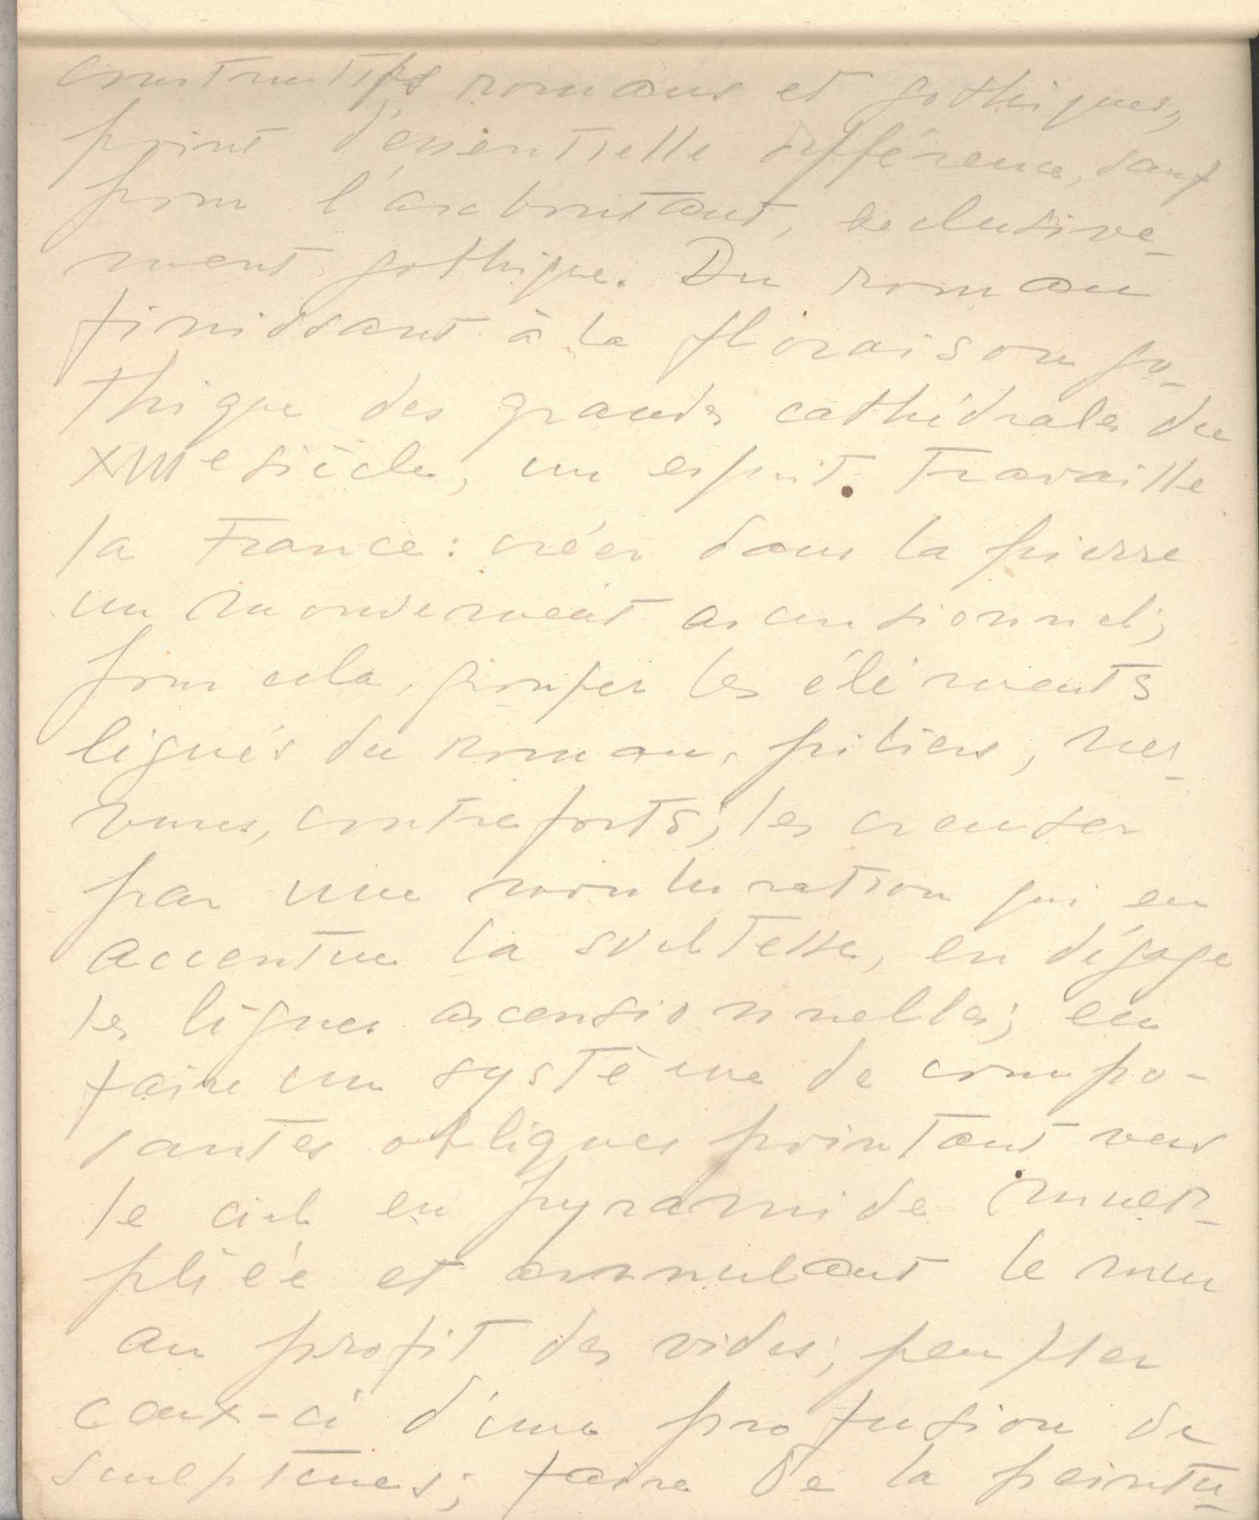 constructifs romans et gothiques,
point d'essentielle différence, sauf
pour l'arcboutant, exclusive-
ment gothique. Du roman
finissant à la floraison go-
thique des grandes cathédrales du
XIIIe siècle, un esprit travaille
la France : créer dans la pierre
un mouvement ascensionnel ;
pour cela, grouper les éléments
lignés du roman, piliers, ner-
vures, contreforts ; les creuser
par une mouluration qui en
accentue la sveltesse, en dégage
les lignes ascensionnelles ; en
faire un système de compo-
santes obliques pointant vers
le ciel en pyramide
et annulant le mur
au profit des vides ; peupler
ceux-ci d'une profusion de
sculptures ; faire de la peintu-